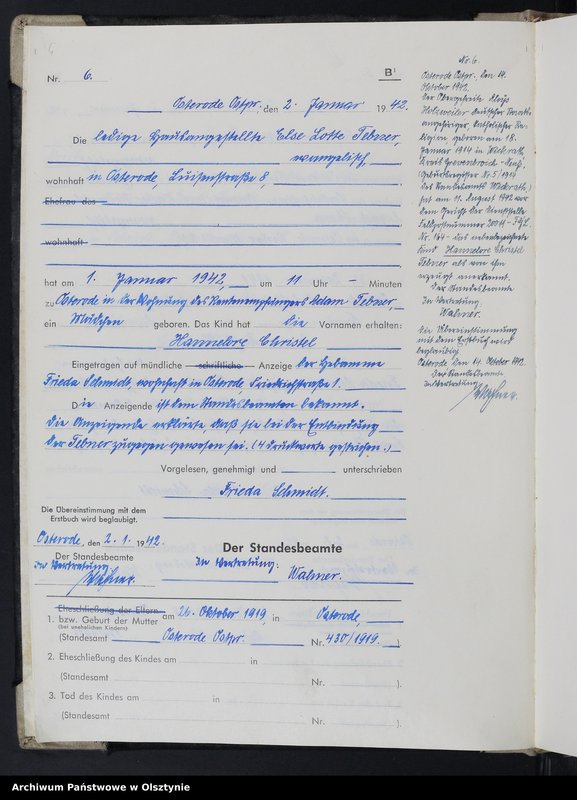 Nr. 6. B¹
Osterode Ostpr., den 2. Januar 1942.
Die ledige Hausangestellte Else Lotte Tebner,
evangelisch,
wohnhaft in Osterode, Luisenstraße 8,
Ehefrau des
wohnhaft
hat am 1. Januar 1942, um 11 Uhr — Minuten
zu Osterode in der Wohnung des Rentenempfängers Adam Tebner,
ein Mädchen geboren. Das Kind hat die Vornamen erhalten:
Hannelore Christel
Eingetragen auf mündliche — schriftliche — Anzeige der Hebamme
Frieda Schmidt wohnhaft in Osterode Friedrichstraße 1.
Die Anzeigende ist dem Standesbeamten bekannt.
Die Anzeigende erklärte, daß sie bei der Entbindung
der Tebner zugegen gewesen sei. (4 Druckworte gestrichen.)
Vorgelesen, genehmigt und unterschrieben
Frieda Schmidt.
Die Übereinstimmung mit dem
Erstbuch wird beglaubigt.
Osterode, den 2. 1. 1942.
Der Standesbeamte
In Vertretung
Der Standesbeamte
In Vertretung:
Walmer.
Eheschließung der Eltern
1. bzw. Geburt der Mutter am 26. Oktober 1919 in Osterode,
(bei unehelichen Kindern)
(Standesamt Osterode Ostpr. Nr. 430/1919.)
2. Eheschließung des Kindes am in
(Standesamt Nr. ).
3. Tod des Kindes am in
(Standesamt Nr. ).
Nr. 6.
Osterode Ostpr., den 14.
Oktober 1942.
Der Obergefreite Aloys
deutscher
katholischer
geboren am 18.
Januar 1914 in
Kreis Grevenbroich-Neuß,
(Geburtsregister Nr. 5/1914
des Standesamts)
hat am 11. August 1942 vor
dem Gericht der Dienststelle
Feldpostnummer
Nr. 164 - das nebenbezeichnete
Kind Hannelore Christel
Tebner als von ihm
erzeugt anerkannt.
Der Standesbeamte
In Vertretung.
Walmer.
Die Übereinstimmung
mit dem Erstbuch wird
beglaubigt.
Osterode, den 14. Oktober 1942.
Der Standesbeamte
In Vertretung
Archiwum Państwowe w Olsztynie